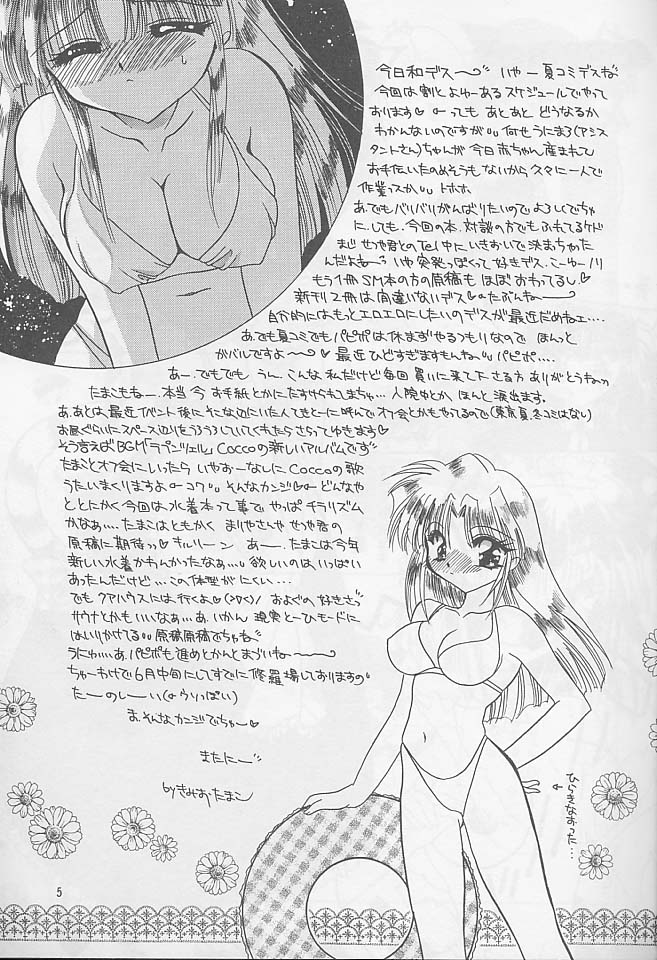 今日和デス〜 いやー夏コミデスね
今回は割とよゆーあるスケジュールでやって
おります っても あとあと どうなるか
わかんないのですが 何せうにまろ(アシス
タントさん)ちゃんが今日赤ちゃん産まれて
お手伝いたのめそうもないから久々に一人で
作業っスか トホホ
あ、でもバリバリがんばりたいのでよろしくでちゃ
にしても、今回の本、対談の方でもふれてるケド
まじ せつや君とのTel中にいきおいで決まっちゃった
んだよねー いや突発っぽくって好きデス、こーゆーノリ
もう1冊SM本の方の原稿も ほぼおわってるし
新刊2冊は間違いないデス たぶんねー
自分的にはもっとエロエロにしたいのデスが最近だめねェ…
あ、でも夏コミでもパピポは休まずやるつもりなので ほんっと
ガバルですよ〜 最近ひどすぎますもんね パピポ…
あー、でもでも うんー、こんな私だけど毎回買いに来て下さる方 ありがとうねっ
たまこもねー、本当今お手紙とかにたすけられこまちゅ…入院中とか、ほんと涙出ます
あ、あとは、最近イベント後にそこな辺にいた人てきとーに呼んでオフ会とかもやってるので(東京夏、冬コミはなし)
お暇ぐらいたスペース辺りをうろうろしていてくれたらさらってゆきます
そう言えばBGM「ラプンツェル」Coccoの新しいアルバムです
たまことオフ会にいったら いやおーなしにCoccoの歌
うたいまくりますよ コワ そんなカンジ どんなや
ととにかく今回は水着本って事で やっぱチラリズム
かなぁ… たまこはともかく まりやさんや せつや君の
原稿に期待っ キルリーン あー、たまこは今年
新しい水着かわんかったなぁ… 欲しいのは、いっぱい
あったんだけど…この体型がにくい…
でも クアハウスには行くよ およぐの好きさっ
サウナとかもいいなぁ… あ、いかん 現実とーひモードに
はいりかけてる 原稿原稿でちゃね
うにゅ… あ、パピポも進めとかんとまづいねー
ちゅーわけで6月中旬にしてすでに修羅場しておりますの
たーのしーい(ウソいっぱい)
ま、そんなカンジでちゃー
またにー
by きみおたまこ
ひらきなおった…
5